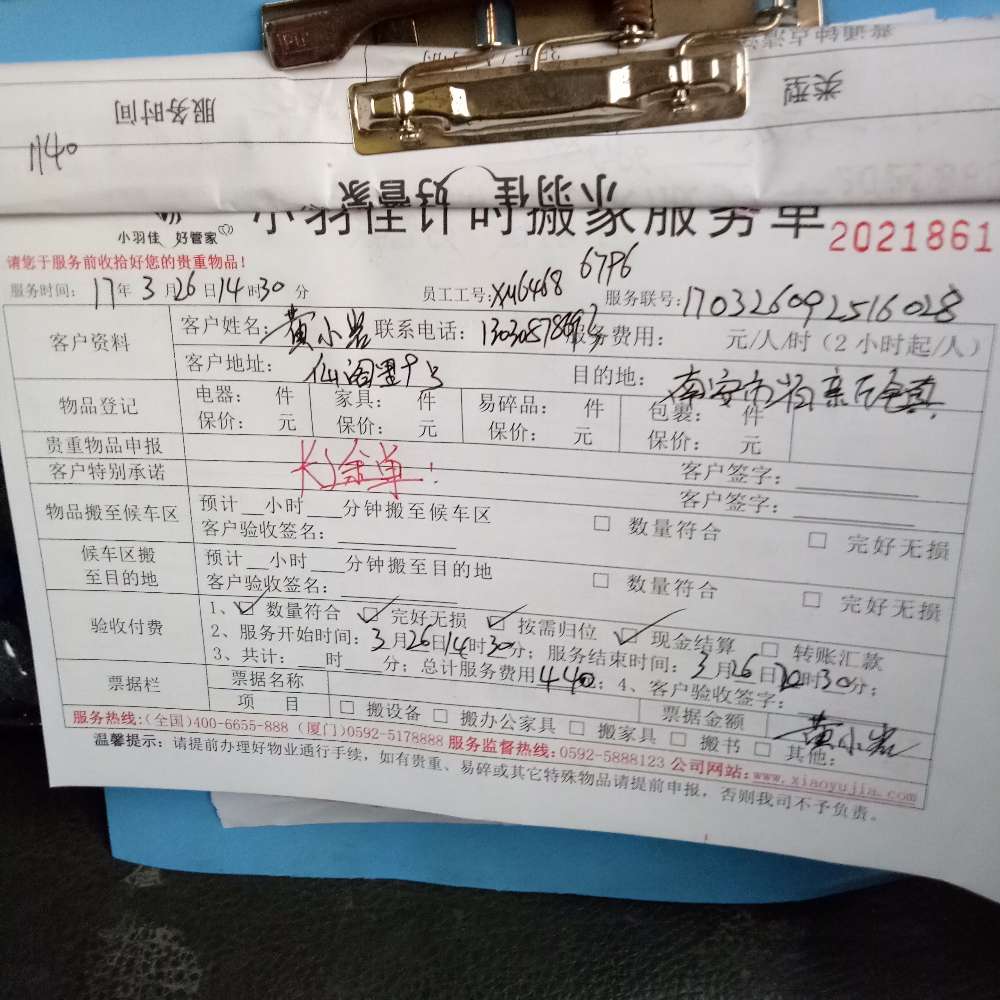 类型
服务时间
1140
小羽佳 好管家
小羽佳计时搬家服务单
2021861
小羽佳 好管家
请您于服务前收拾好您的贵重物品!
6796
服务时间: 17年3月26日14时30分 员工工号:XM6468 服务联号:170326092516028
客户资料 客户姓名: 黄小岩 联系电话: 服务费用: 元/人/时(2小时起/人)
客户地址: 仙阁里9号 目的地: 南安市
物品登记 电器: 件 家具: 件 易碎品: 件 包裹: 件
保价: 元 保价: 元 保价: 元 保价: 元
贵重物品申报 客户签字:
客户特别承诺 长途单! 客户签字:
物品搬至候车区 预计__小时___分钟搬至候车区 □ 数量符合 □ 完好无损
客户验收签名:
候车区搬至目的地 预计__小时___分钟搬至目的地 □ 数量符合 □ 完好无损
客户验收签名:
验收付费 1、☑ 数量符合 ☑ 完好无损 ☑ 按需归位 ☑ 现金结算 □ 转账汇款
2、服务开始时间: 3月26日14时30分; 服务结束时间: 3月26日20时30分;
3、共计: ___时___分; 总计服务费用440; 4、客户验收签字: 黄小岩
票据栏 票据名称 票据金额
项 目 □ 搬设备 □ 搬办公家具 □ 搬家具 □ 搬书 □ 其他:
服务热线:(全国)400-6655-888 (厦门)0592-5178888 服务监督热线:0592-5888123 公司网站:www.xiaoyujia.com
温馨提示: 请提前办理好物业通行手续, 如有贵重、易碎或其它特殊物品请提前申报, 否则我司不予负责。